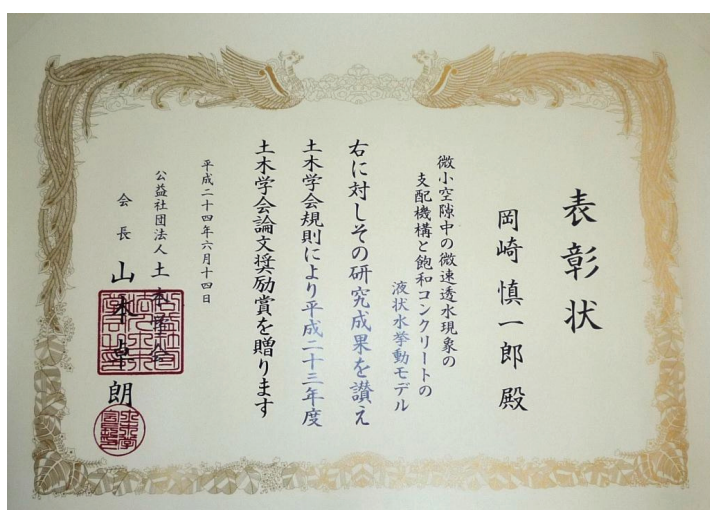 表彰状
岡崎慎一郎 殿
微小空隙中の微速透水現象の
支配機構と飽和コンクリートの
液状水挙動モデル
右に対しその研究成果を讃え
土木学会規則により平成二十三年度
土木学会論文奨励賞を贈ります
平成二十四年六月十四日
公益社団法人 土木学会
会長 山本卓朗